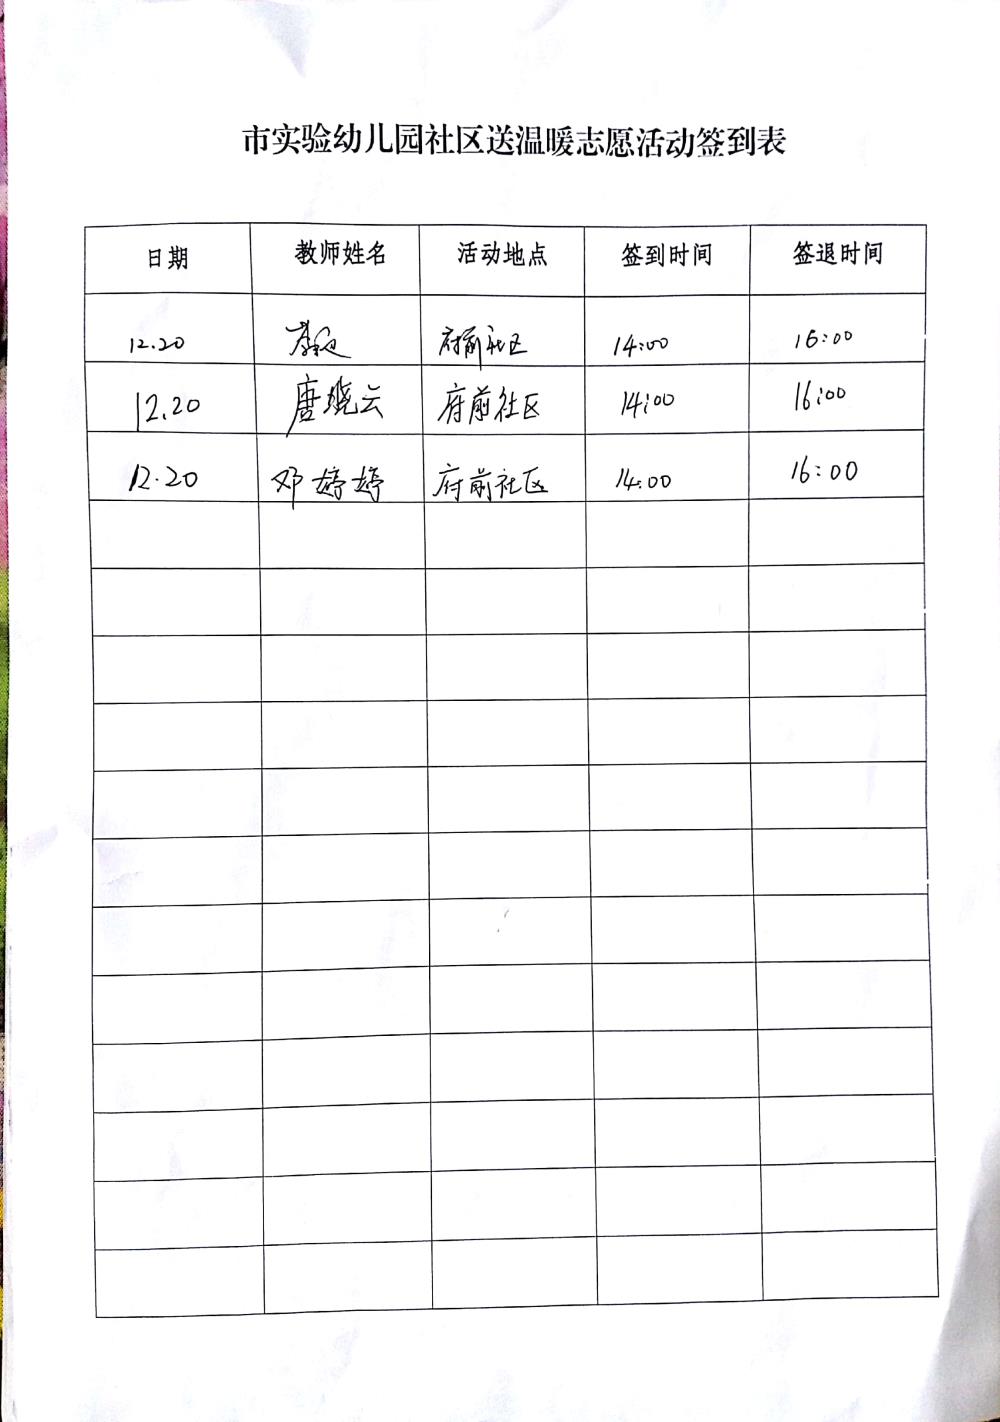 市实验幼儿园社区送温暖志愿活动签到表
日期 教师姓名 活动地点 签到时间 签退时间
12.20 府前社区 14:00 16:00
12.20 唐晓云 府前社区 14:00 16:00
12.20 邓婷婷 府前社区 14:00 16:00